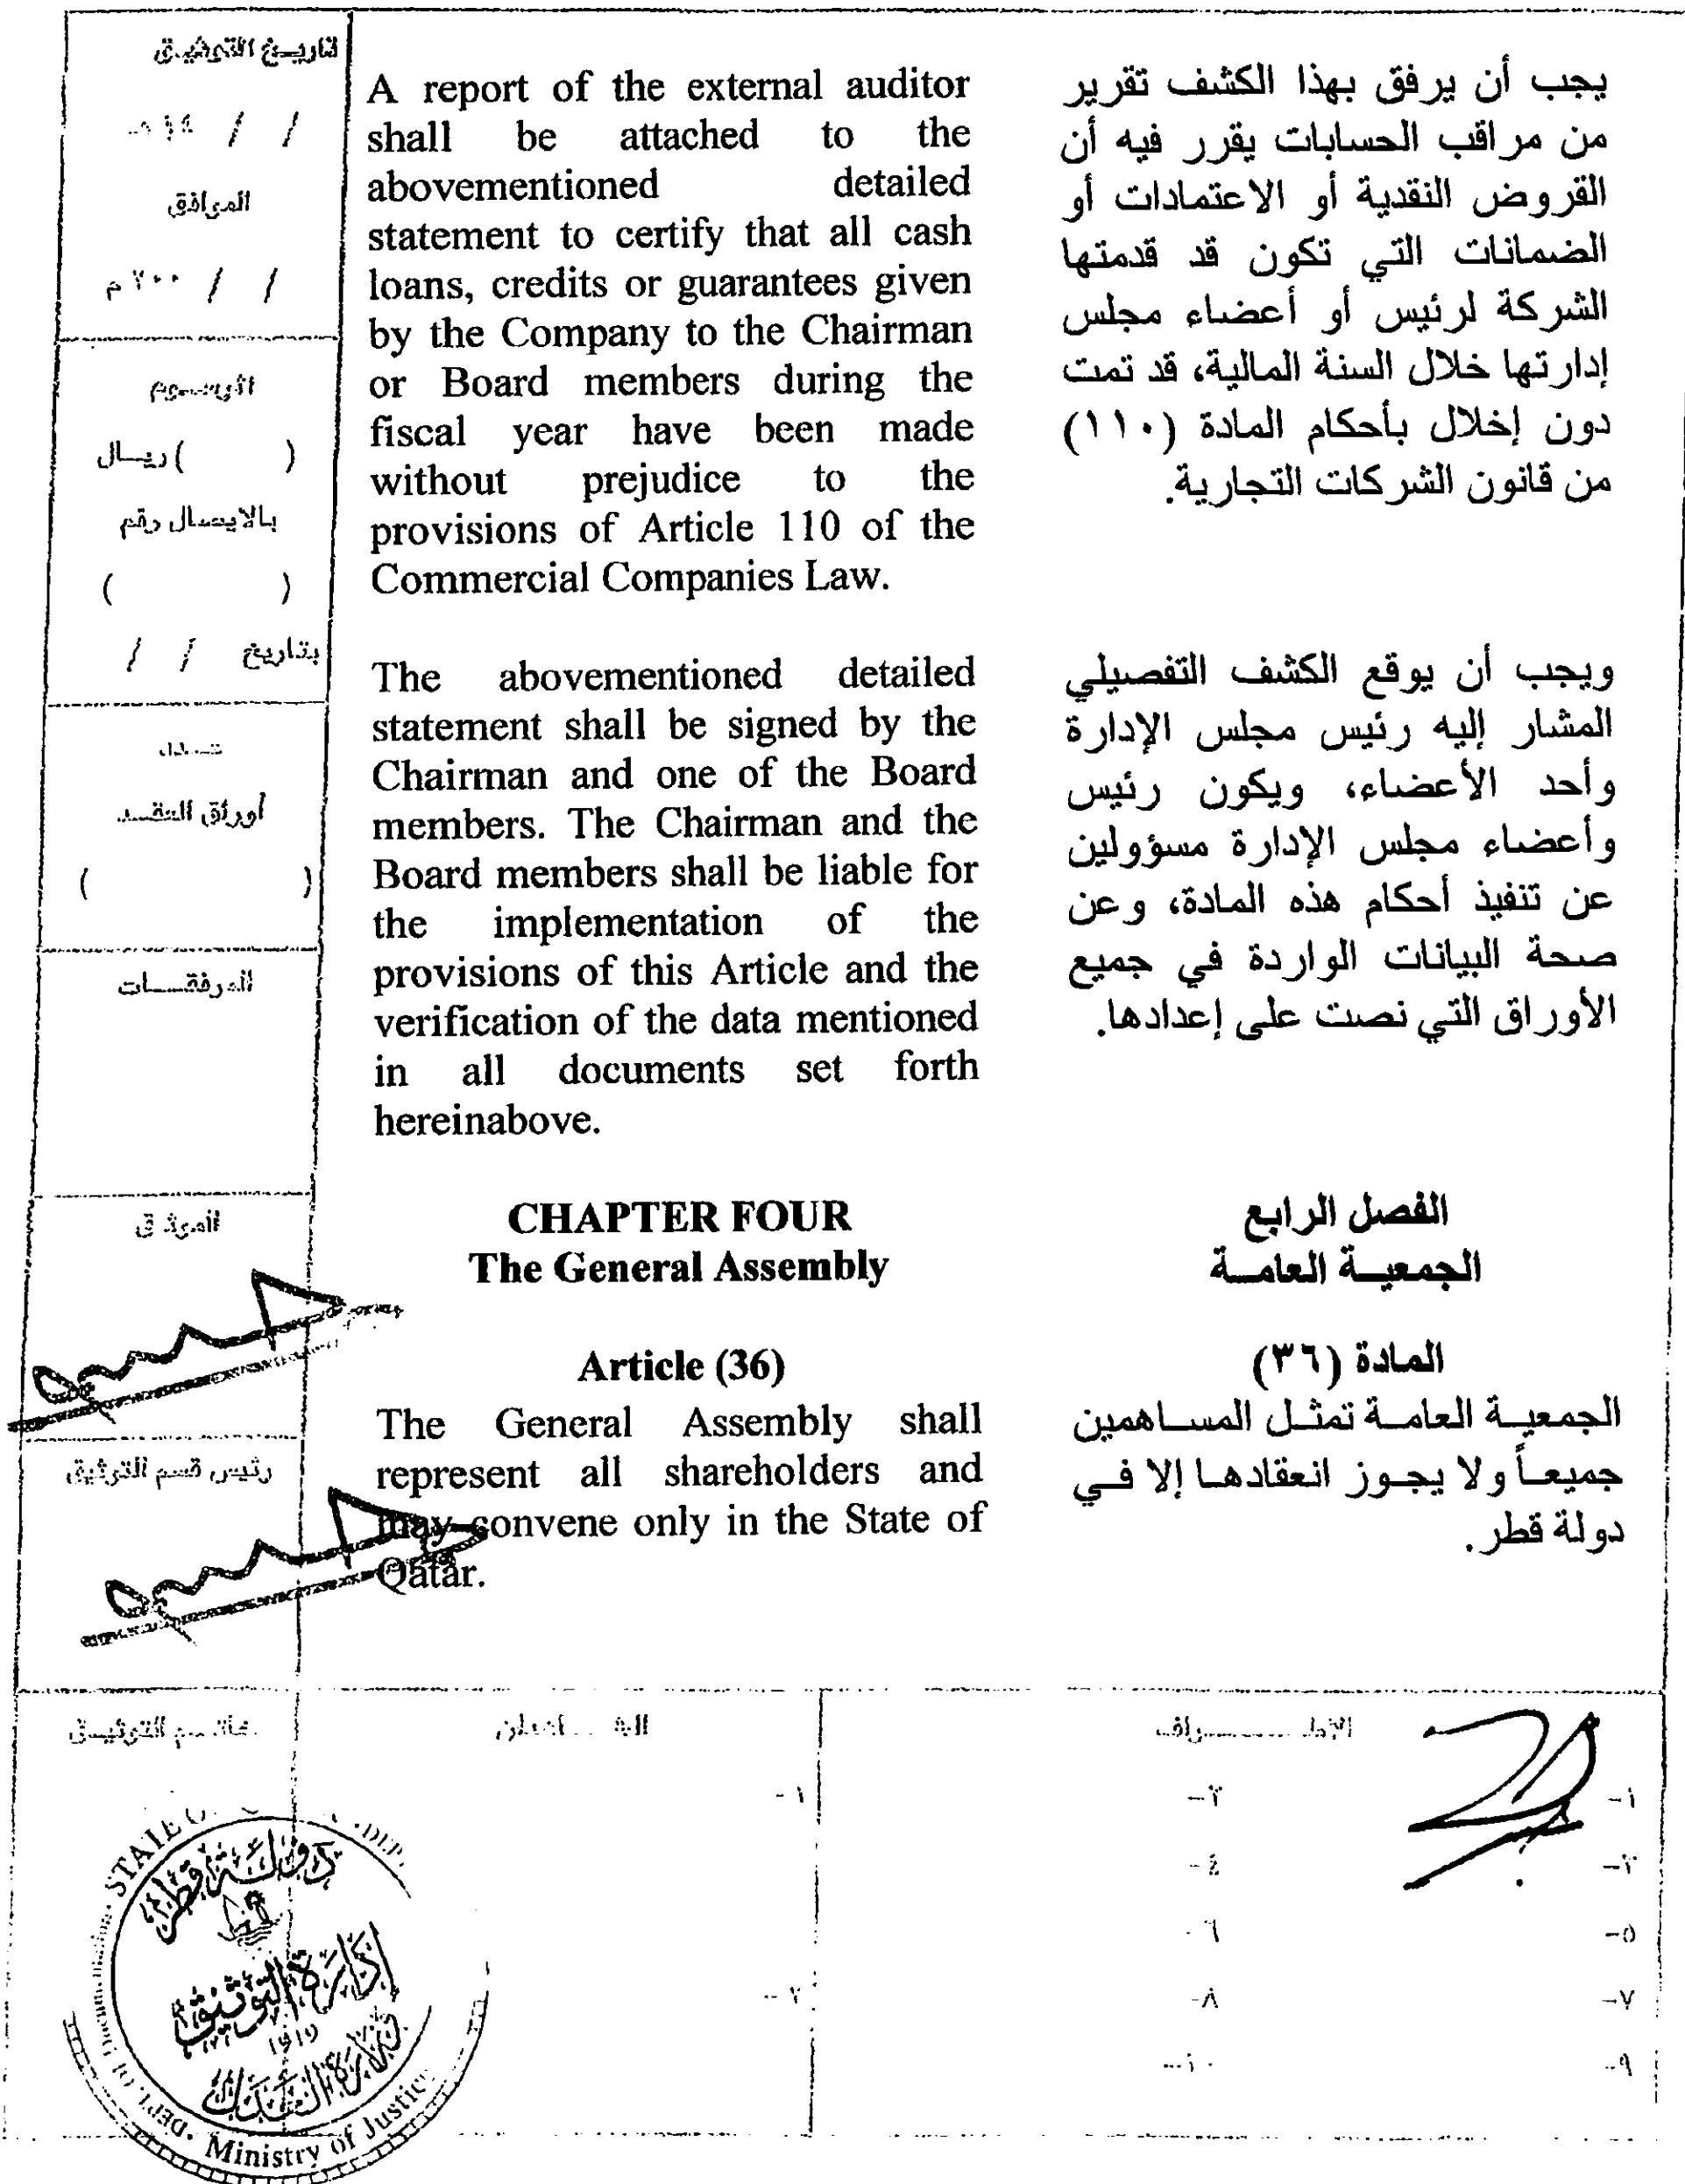 تاريخ التوثيق
/ / ١٤ هـ
الموافق
/ / ٢٠٠ م
الرسوم
( ) ريال
بالايصال رقم
( )
بتاريخ / /
أوراق العقد
( )
المرفقات
الموثق
رئيس قسم التوثيق
A report of the external auditor
shall be attached to the
abovementioned detailed
statement to certify that all cash
loans, credits or guarantees given
by the Company to the Chairman
or Board members during the
fiscal year have been made
without prejudice to the
provisions of Article 110 of the
Commercial Companies Law.
The abovementioned detailed
statement shall be signed by the
Chairman and one of the Board
members. The Chairman and the
Board members shall be liable for
the implementation of the
provisions of this Article and the
verification of the data mentioned
in all documents set forth
hereinabove.
CHAPTER FOUR
The General Assembly
Article (36)
The General Assembly shall
represent all shareholders and
may convene only in the State of
Qatar.
يجب أن يرفق بهذا الكشف تقرير
من مراقب الحسابات يقرر فيه أن
القروض النقدية أو الاعتمادات أو
الضمانات التي تكون قد قدمتها
الشركة لرئيس أو أعضاء مجلس
إدارتها خلال السنة المالية، قد تمت
دون إخلال بأحكام المادة (١١٠)
من قانون الشركات التجارية.
ويجب أن يوقع الكشف التفصيلي
المشار إليه رئيس مجلس الإدارة
وأحد الأعضاء، ويكون رئيس
وأعضاء مجلس الإدارة مسؤولين
عن تنفيذ أحكام هذه المادة، وعن
صحة البيانات الواردة في جميع
الأوراق التي نصت على إعدادها.
الفصل الرابع
الجمعيـة العامـة
المادة (٣٦)
الجمعيـة العامـة تمثـل المسـاهمين
جميعـاً ولا يجـوز انعقادهـا إلا فـي
دولة قطر.
الأطـراف
١-
٢-
٣-
٤-
٥-
٦-
٧-
٨-
٩-
١٠-
الشـاهدان
١-
٢-
دولة قطر
إدارة التوثيق
وزارة العدل
Ministry of Justice